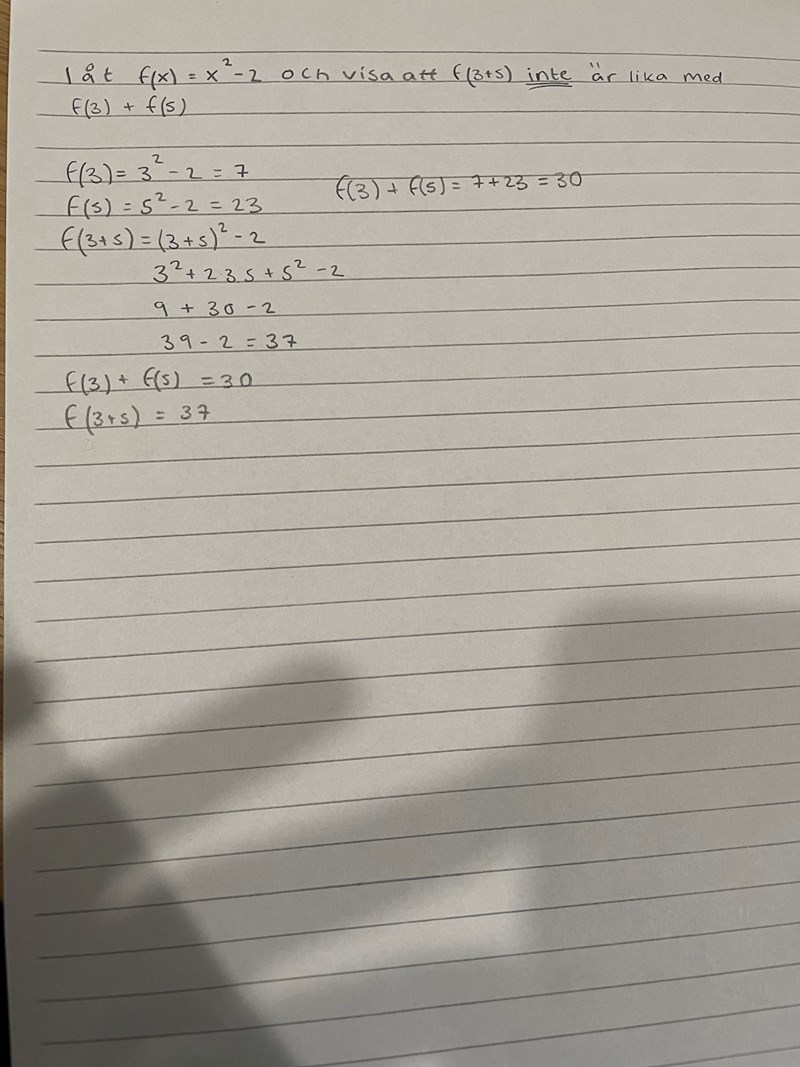 låt f(x) = x² - 2 och visa att f(3+5) inte är lika med
f(3) + f(5)
f(3) = 3² - 2 = 7
f(3) + f(5) = 7+23 = 30
f(5) = 5² - 2 = 23
f(3+5) = (3+5)² - 2
3² + 2·3 5 + 5² - 2
9 + 30 - 2
39 - 2 = 37
f(3) + f(5) = 30
f(3+5) = 37